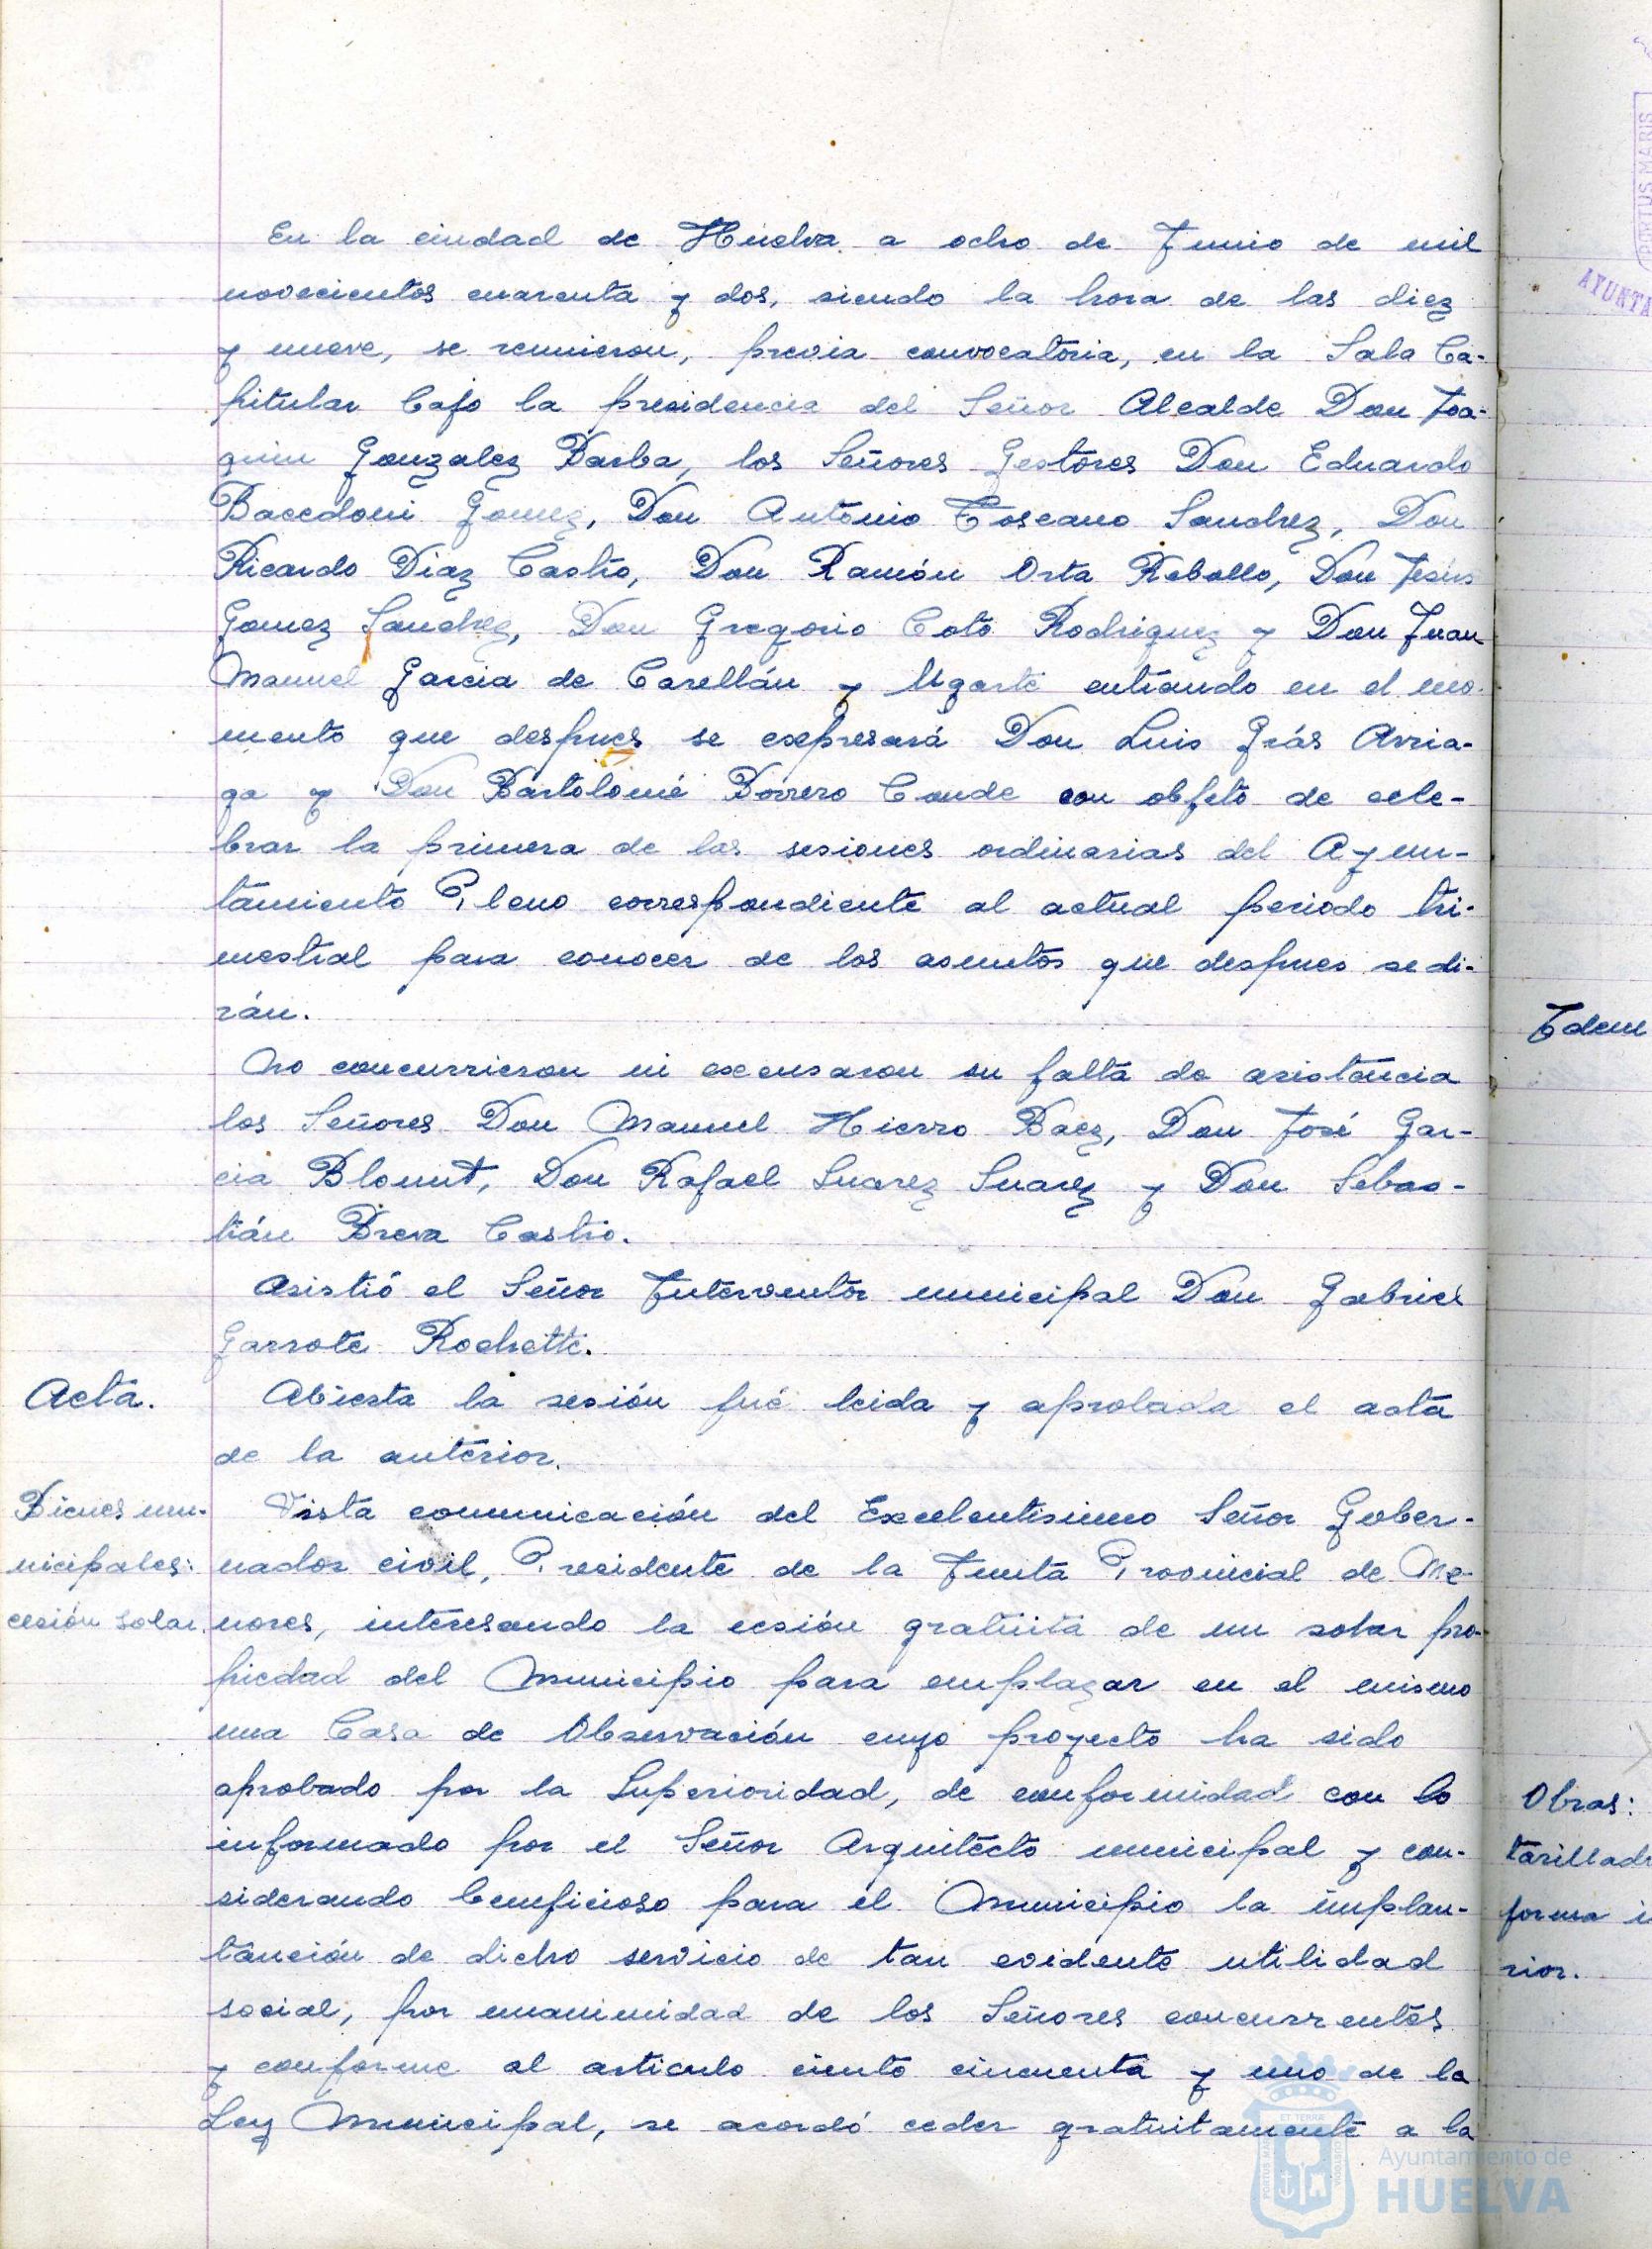 En la ciudad de Huelva a ocho de Junio de mil
novecientos cuarenta y dos, siendo la hora de las diez
y nueve, se reunieron, previa convocatoria, en la Sala Ca-
pitular bajo la presidencia del Señor Alcalde Don Joa-
quin Gonzalez Barba, los Señores Gestores Don Eduardo
Bacedoni Gomez, Don Antonio Toscano Sanchez, Don
Ricardo Diaz Castro, Don Ramón Orta Rebollo, Don Jesus
Gomez Sanchez, Don Gregorio Coto Rodriguez y Don Juan
Manuel Garcia de Carellán y Ugarte entrando en el mo-
mento que despues se expresará Don Luis Grás Arria-
ga y Don Bartolomé Borrero Conde con objeto de cele-
brar la primera de las sesiones ordinarias del Ayun-
tamiento Pleno correspondiente al actual periodo tri-
mestral para conocer de los asuntos que despues se di-
rán.
No concurrieron ni excusaron su falta de asistencia
los Señores Don Manuel Hierro Baez, Don José Gar-
cia Blount, Don Rafael Suarez Suarez y Don Sebas-
tián Breva Castro.
Asistió el Señor Interventor municipal Don Gabriel
Garrote Rochette.
Acta.
Abierta la sesión fué leida y aprobada el acta
de la anterior.
Bienes mu-
nicipales:
cesión solar.
Vista comunicación del Excelentisimo Señor Gober-
nador civil, Presidente de la Junta Provincial de Me-
nores, interesando la cesión gratuita de un solar pro-
piedad del Municipio para emplazar en el mismo
una Casa de Observación cuyo proyecto ha sido
aprobado por la Superioridad, de conformidad con lo
informado por el Señor Arquitecto municipal y con-
siderando beneficioso para el Municipio la implan-
tanción de dicho servicio de tan evidente utilidad
social, por unanimidad de los Señores concurrentes
y conforme al articulo ciento cincuenta y uno de la
Ley Municipal, se acordó ceder gratuitamente a la
Idem
Obras:
forma i
rior.
PORTUS MARIS
AYUNTA
Ayuntamiento de
HUELVA